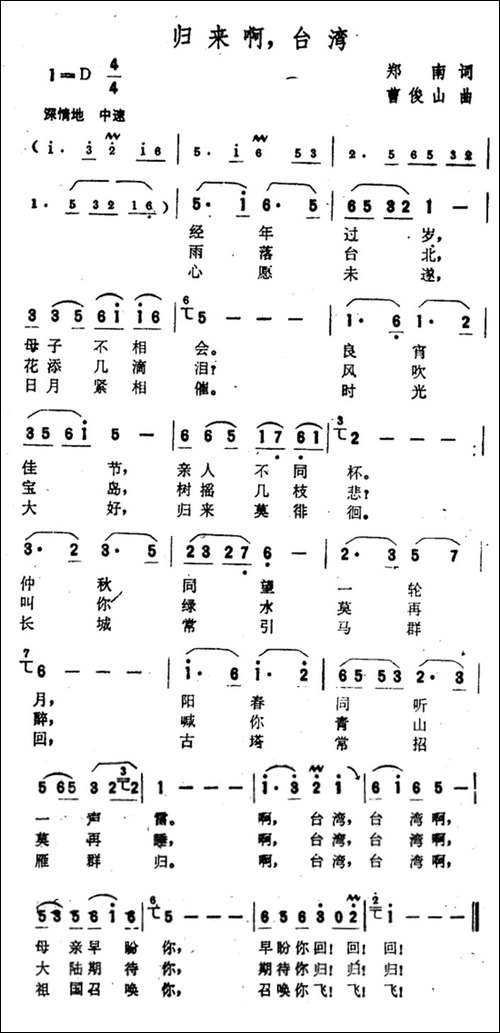 归来啊，台湾
1=D 4/4
郑南词
深情地 中速
曹俊山曲
(i. 3 2 i6 | 5. i 6 53 | 2. 5 65 32
1. 5 32 16) | 5. i 6. 5 | 65 32 1 —
经年过岁，
雨落台北，
心愿未遂，
3 35 6i i6 | 5 — — — | 1. 6 1. 2
母子不相会。良宵
花添几滴泪？风吹
日月紧相催。时光
35 6i 5 — | 6 65 17 61 | 2 — — —
佳节，亲人不同杯。
宝岛，树摇几枝悲？
大好，归来莫徘徊。
3. 2 3. 5 | 23 27 6 — | 2. 3 5 7
仲秋同望一轮
叫你绿水莫再
长城常引马群
6 — — — | i. 6 i. 2 | 65 53 2. 3
月，阳春同听
醉，喊你青山
回，古塔常招
5 65 32 2 | 1 — — — | i. 3 2 i | 6 i 65 —
一声雷。啊，台湾，台湾啊，
莫再睡，啊，台湾，台湾啊，
雁群归。啊，台湾，台湾啊，
53 56 i6 | 5 — — — | 65 63 02 | i — —
母亲早盼你，早盼你回！回！回！
大陆期待你，期待你归！归！归！
祖国召唤你，召唤你飞！飞！飞！